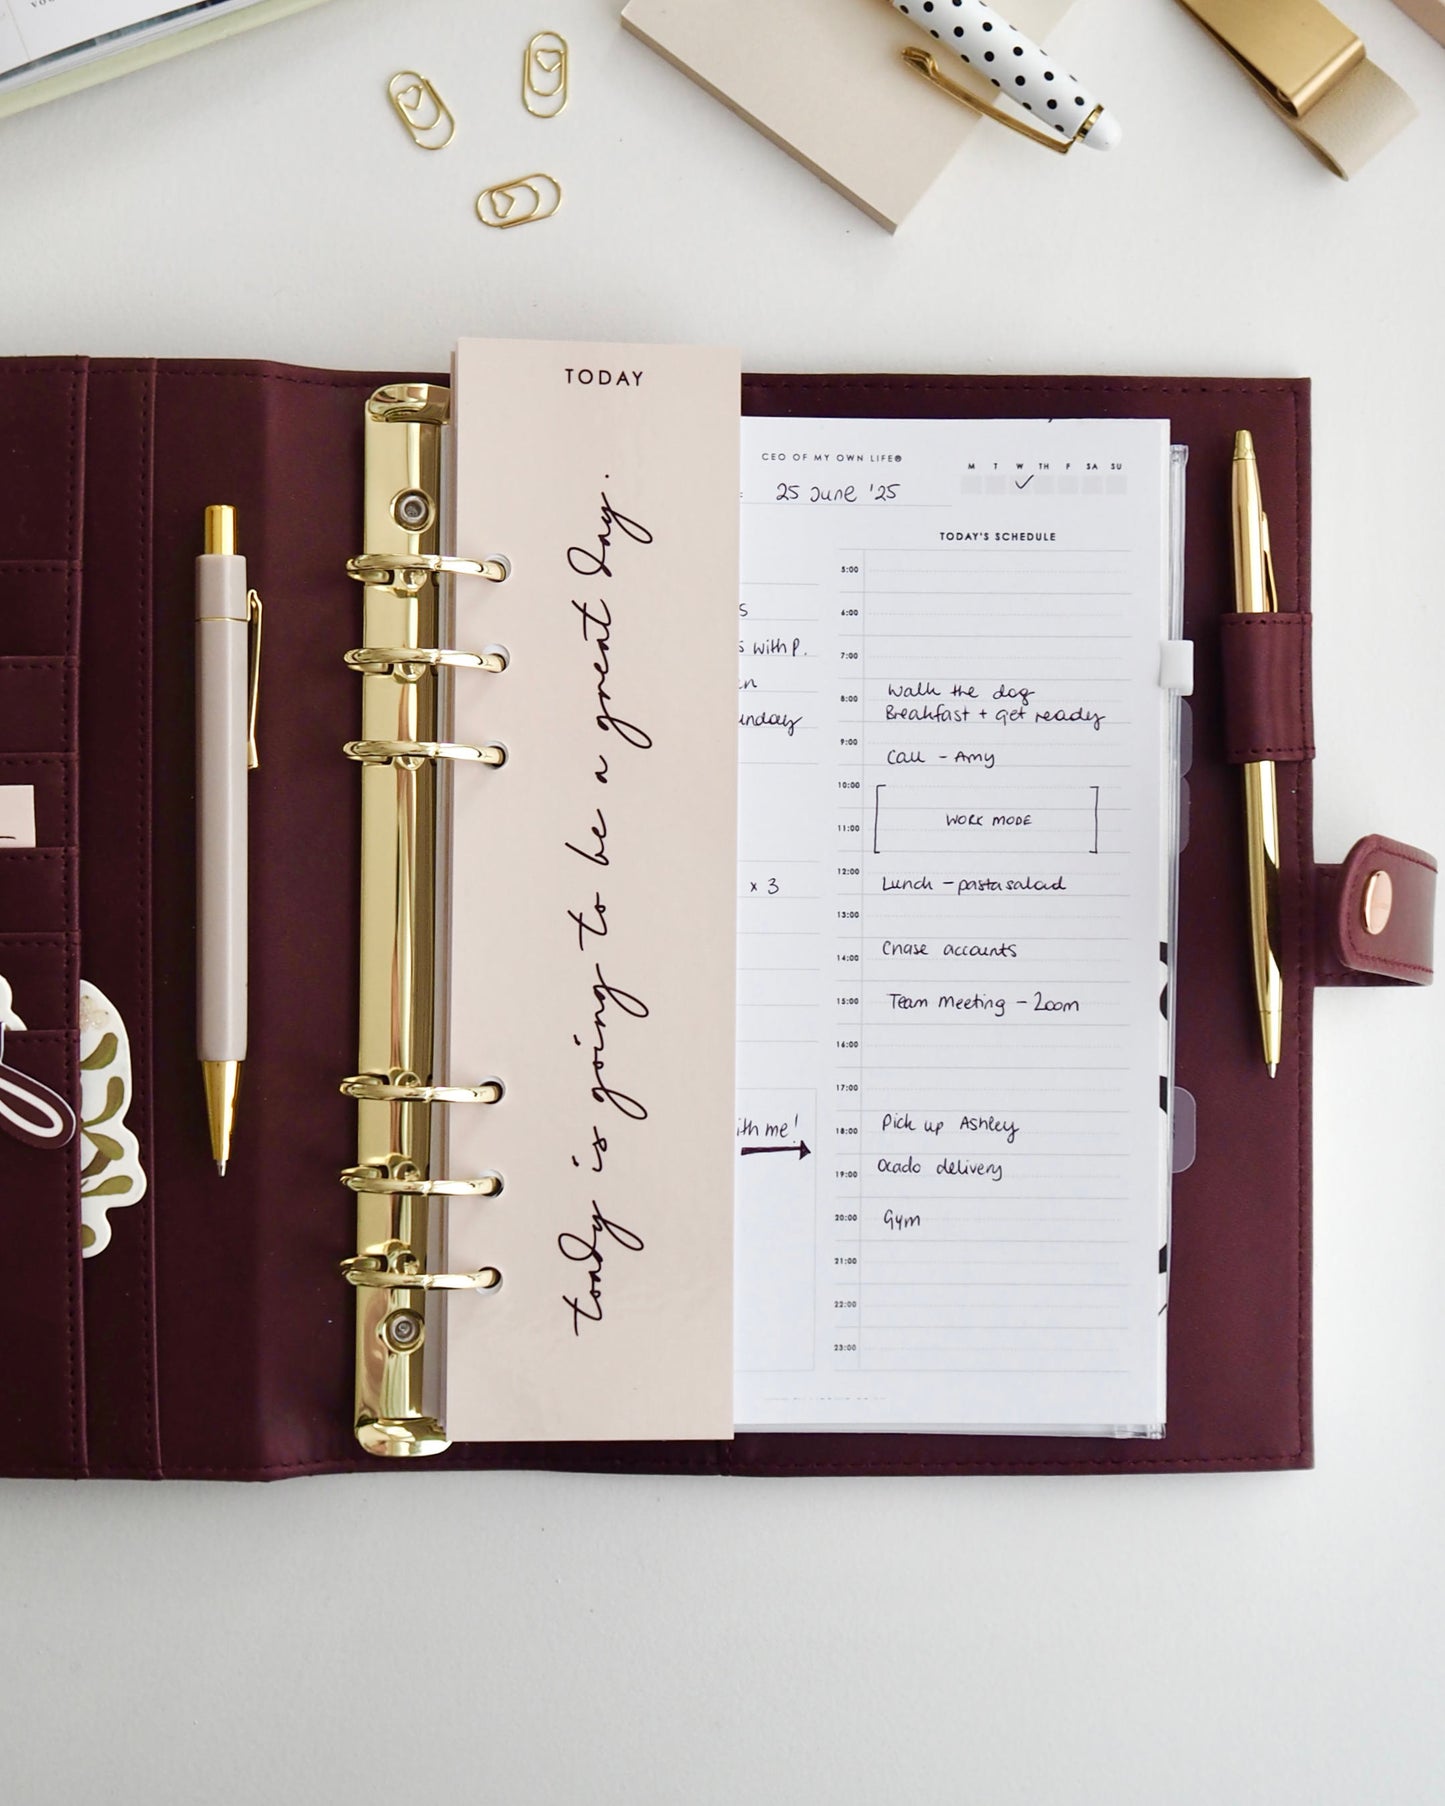 TODAY
today is going to be a great day.
CEO OF MY OWN LIFE®
M T W TH F SA SU
25 June '25
TODAY'S SCHEDULE
5:00
6:00
with P.
7:00
8:00 Walk the dog
Breakfast + get ready
9:00
Call - Amy
10:00
WORK MODE
11:00
12:00
x 3
Lunch - pasta salad
13:00
14:00 Chase accounts
15:00 Team meeting - Zoom
16:00
17:00
with me!
18:00 Pick up Ashley
19:00 Ocado delivery
20:00 Gym
21:00
22:00
23:00